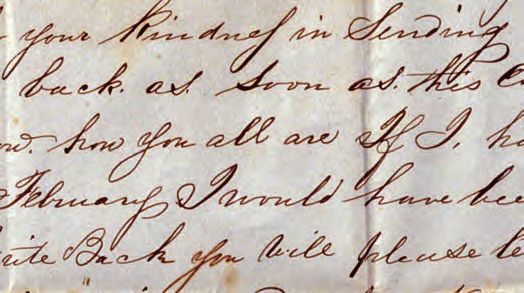 your kindness in Sending
back. as. Soon as. this
how you all are If I. ha
February I would have bee
rite Back you will please le